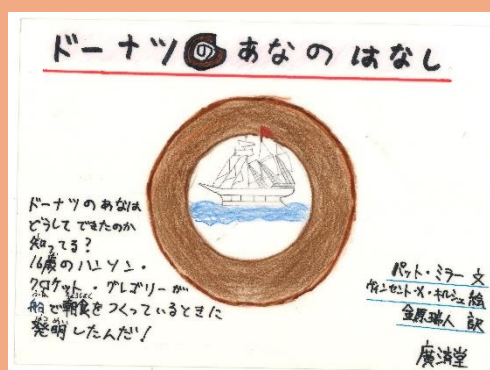 ドーナツのあなのはなし
ドーナツのあなは
どうしてできたのか
知ってる?
16歳のハンソン・
クロケット・グレゴリーが
船で朝食をつくっているときに
発明したんだ!
パット・ミラー 文
ヴィンセント・X・キルシュ 絵
金原瑞人 訳
廣済堂